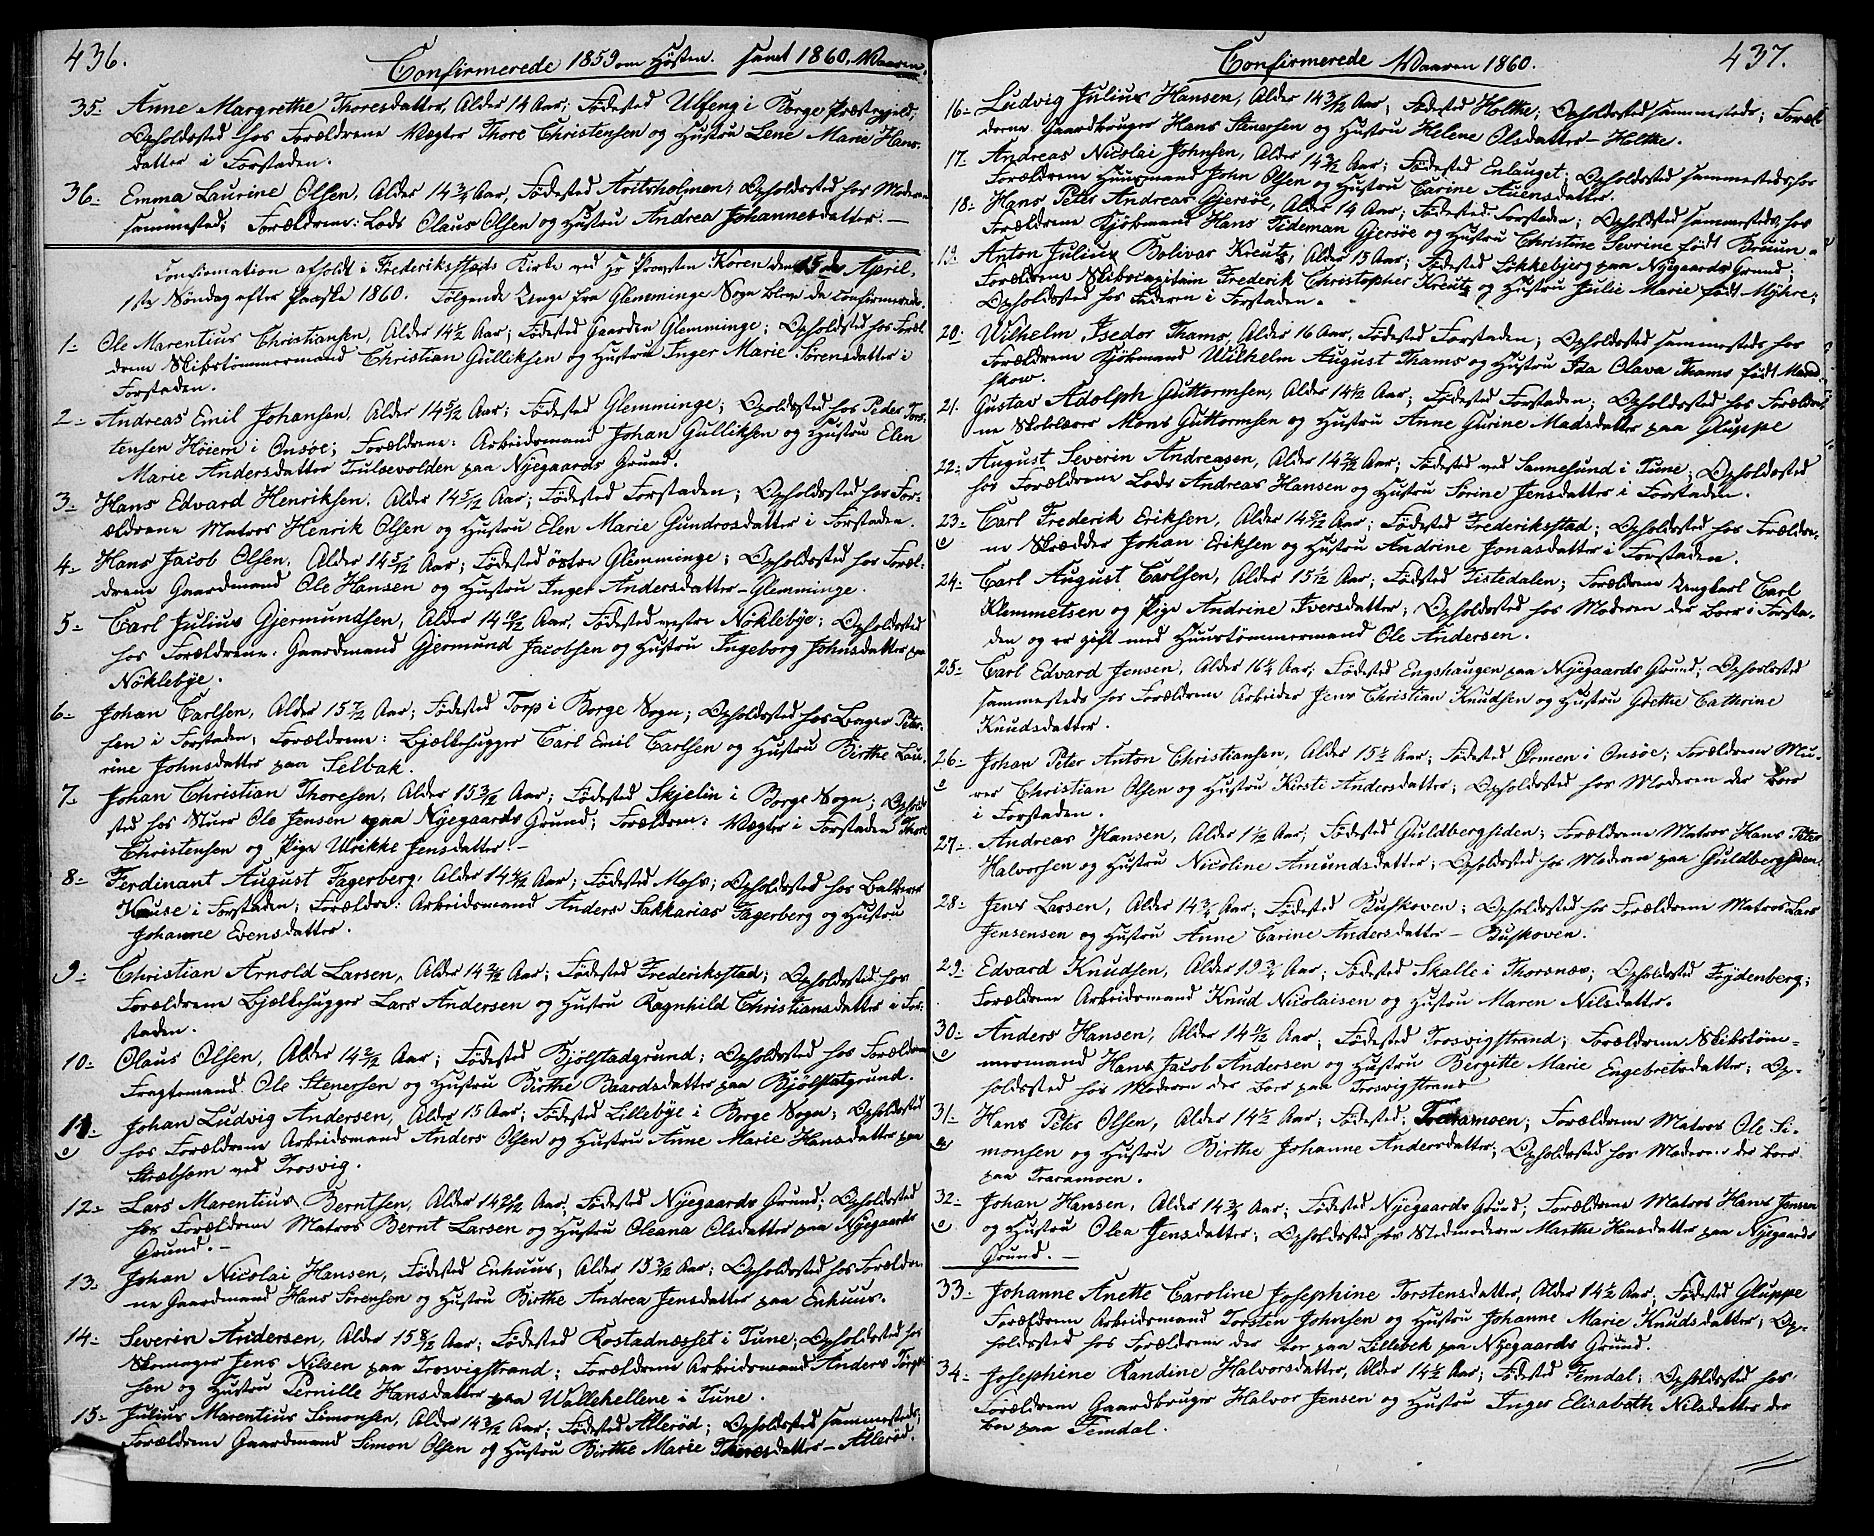 436.
Confirmerede 1859 om Høsten. samt 1860, Vaaren.
35- Anne Margrethe Thoresdatter, Alder 14 Aar; Fødested Ulfeng i Borge Præstegjeld;
Opholdssted hos Forældrene Vægter Thore Christensen og Hustru Lene Marie Hans-
datter i Forstaden.
36- Emma Laurine Olsen, Alder 14 3/4 Aar, Fødested Aritsholmen; Opholdssted hos Moderen
sammested; Forældrene: Lods Claus Olsen og Hustru Andrea Johannesdatter. -
Confirmation afholdt i Frederikstads Kirke ved Hr Provsten Koren den 15de April,
1ste Søndag efter Paaske 1860. Følgende Unge fra Glemminge Sogn bleve da confirmerede.
1- Ole Marentius Christiansen, Alder 14½ Aar; Fødested Gaarden Glemminge; Opholdssted hos Foræl
drene Skibstømmermand Christian Gulliksen og Hustru Inger Marie Sørensdatter i
Forstaden.
2- Andreas Emil Johansen, Alder 14 5/12 Aar; Fødested Glemminge; Opholdssted hos Peder Tors-
tensen Høiem i Onsøe; Forældrene: Arbeidsmand Johan Gulliksen og Hustru Elen
Marie Andersdatter Trulsevolden paa Nyegaards Grund.
3- Hans Edvard Henriksen, Alder 14 5/12 Aar; Fødested Forstaden; Opholdssted hos For-
ældrene Matros Henrik Olsen og Hustru Elen Marie Gundrosdatter i Forstaden.
4- Hans Jacob Olsen, Alder 14 5/12 Aar; Fødested østre Glemminge; Opholdssted hos Foræl-
drene Gaardmand Ole Hansen og Hustru Inger Andersdatter - Glemminge.
5- Carl Julius Gjermundsen, Alder 14 10/12 Aar, Fødested vestre Nøklebye; Opholdssted
hos Forældrene: Gaardmand Gjermund Jacobsen og Hustru Ingeborg Johnsdatter paa
Nøklebye.
6- Johan Carlsen, Alder 15 7/12 Aar; Fødested Torp i Borge Sogn; Opholdssted hos Bager Peter-
sen i Forstaden; Forældrene: Bjælkehugger Carl Emil Carlsen og Hustru Birthe Lau-
rine Johnsdatter paa Selbak.
7- Johan Christian Thoresen, Alder 15 3/12 Aar; Fødested Skjelin i Borge Sogn; Opholds
sted hos Stuer Ole Jensen paa Nyegaards Grund; Forældrene: Vægter i Forstaden Thore
Christensen og Pige Ulrikke Jensdatter -
8- Ferdinant August Fagerberg, Alder 14 4/12 Aar; Fødested Moss; Opholdssted hos Balberer
Kause i Forstaden; Forældre: Arbeidsmand Anders Sakkarias Fagerberg og Hustru
Johanne Evensdatter.
9- Christian Arnold Larsen, Alder 14 3/12 Aar; Fødested Frederiksstad; Opholdssted hos
Forældrene Bjælkehugger Lars Andersen og Hustru Ragnhild Christiansdatter i For-
staden.
10- Olaus Olsen, Alder 14 2/12 Aar; Fødested Bjølstadgrund; Opholdssted hos Forældrene
Fragtemand Ole Stenersen og Hustru Birthe Baardsdatter paa Bjølstatgrund.
11- Johan Ludvig Andersen, Alder 15 Aar; Fødested Lillebye i Borge Sogn; Opholdssted
hos Forældrene Arbeidsmand Anders Olsen og Hustru Anne Marie Hansdatter paa
Stræbsom ved Trosvig.
12- Lars Marentius Berntsen, Alder 14 2/12 Aar; Fødested Nyegaards Grund; Opholdssted
hos Forældrene Matros Bernt Larsen og Hustru Oleana Olsdatter paa Nyegaards
Grund. -
13- Johan Nicolai Hansen, Fødested Enhuus, Alder 15 3/12 Aar; Opholdssted hos Forældre-
ne Gaardmand Hans Sørensen og Hustru Birthe Andrea Jensdatter paa Enhuus.
14- Severin Andersen, Alder 15 8/12 Aar; Fødested Rostadnæsset i Tune; Opholdssted hos
Skomager Jens Nilsen paa Trosvigstrand; Forældrene Arbeidsmand Anders Torgs-
sen og Hustru Pernille Hansdatter paa Vallehellene i Tune.
15- Julius Marentius Simonsen, Alder 14 3/12 Aar; Fødested Allerød; Opholdssted sammested;
Forældrene Gaardmand Simon Olsen og Hustru Birthe Marie Thoresdatter - Allerød.
437.
Confirmerede Vaaren 1860.
16- Ludvig Julius Hansen, Alder 14 3/12 Aar; Fødested Holtke; Opholdssted sammesteds; Foræl
drene Gaardbruger Hans Stenersen og Hustru Helene Olsdatter - Holtke.
17. Andreas Nicolai Johnsen, Alder 14 3/12 Aar; Fødested Enlauget; Opholdssted sammesteds hos
Forældrene Huusmand John Olsen og Hustru Carine Auensdatter.
18- Hans Peter Andreas Gjersøe, Alder 14 Aar; Fødested Forstaden; Opholdssted sammesteds hos
Forældrene Kjøbmand Hans Tideman Gjersøe og Hustru Christine Sevrine født Bruun -
19. Anton Julius Bolivar Kreutz, Alder 15 Aar; Fødested Løkkebjerg paa Nygaards Grund;
Forældrene Skibscapitain Frederik Christopher Kreutz og Hustru Julie Marie født Myhre;
Opholdssted hos Faderen i Forstaden.
20. Wilhelm Isedor Thams, Alder 16 Aar, Fødested Forstaden; Opholdssted sammesteds hos
Forældrene Kjøbmand Wilhelm August Thams og Hustru Ida Olava Thams født Mand-
skow.
21. Gustav Adolph Guttormsen, Alder 14½ Aar; Fødested Forstaden; Opholdssted hos Forældre-
ne Skolelærer Mons Guttormsen og Hustru Anne Gurine Madsdatter paa Gluppe
22- August Severin Andreasen, Alder 14 3/12 Aar; Fødested ved Sannesund i Tune; Opholdssted
hos Forældrene Lods Andreas Hansen og Hustru Sørine Jensdatter i Forstaden.
23- Carl Frederik Eriksen, Alder 14 5/12 Aar; Fødested Frederiksstad; Opholdssted hos Forældre-
ne Skrædder Johan Eriksen og Hustru Andrine Jonasdatter i Forstaden.
24- Carl August Carlsen, Alder 15½ Aar; Fødested Tistedalen; Forældrene Ungkarl Carl
Klemmetsen og Pige Andrine Iversdatter; Opholdssted hos Moderen der boer i Forsta-
den og er gift med Huustømmermand Ole Andersen.
25- Carl Edvard Jensen, Alder 16¼ Aar; Fødested Engshaugen paa Nyegaards Grund; Opholdssted
sammesteds hos Forældrene Arbeider Jens Christian Knudsen og Hustru Grethe Cathrine
Knudsdatter.
26- Johan Peter Anton Christiansen, Alder 15½ Aar; Fødested Ørmen i Onsøe; Forældrene Mu-
rer Christian Olsen og Hustru Kirsti Andersdatter; Opholdssted hos Moderen der boer
i Forstaden.
27- Andreas Hansen, Alder 1½ Aar; Fødested Guldbergsiden; Forældrene Matros Hans Peter
Halvorsen og Hustru Nicoline Amundsdatter; Opholdssted hos Moderen paa Guldbergsiden.
28- Jens Larsen, Alder 14¾ Aar; Fødested Buskoven; Opholdssted hos Forældrene Matros Lars
Jensensen og Hustru Anne Carine Andersdatter - Buskoven.
29- Edvard Knudsen, Alder 19¾ Aar; Fødested Skalle i Thorsnæs; Opholdssted Fejdenberg;
Forældrene Arbeidsmand Knud Nicolaisen og Hustru Maren Nilsdatter.
30- Anders Hansen, Alder 14½ Aar; Fødested Trosvigstrand; Forældrene Skibstøm-
mermand Hans Jacob Andersen og Hustru Bergitte Marie Engebretsdatter; Op-
holdssted hos Moderen der boer paa Trosvigstrand
31- Hans Peter Olsen, Alder 14½ Aar; Fødested: Traramoen; Forældrene Matros Ole Si-
monsen og Hustru Birthe Johanne Andersdatter; Opholdssted hos Moderen der boer
paa Traramoen.
32- Johan Hansen, Alder 14¾ Aar; Fødested Nyegaards Grund, Forældrene Matros Hans Jensen
og Hustru Olea Jensdatter; Opholdssted hos Stedmoderen Marthe Hansdatter paa Nyegaards
Grund. -
33- Johanne Anette Caroline Josephine Torstensdatter, Alder 14½ Aar; Fødested Gluppe
Forældrene Arbeidsmand Torsten Johnsen og Hustru Johanne Marie Knudsdatter; Op-
holdssted hos Forældrene der boe paa Lillebek paa Nyegaards Grund.
34- Josephine Randine Halvorsdatter, Alder 14½ Aar; Fødested Femdal; Opholdssted hos
Forældrene Gaardbruger Halvor Jensen og Hustru Inger Elisabeth Nilsdatter der
boe paa Femdal.